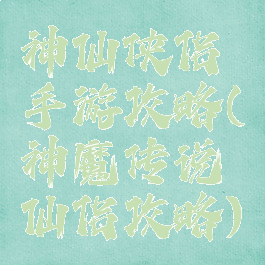 神仙侠侣
手游攻略(
神魔传说
仙侣攻略)